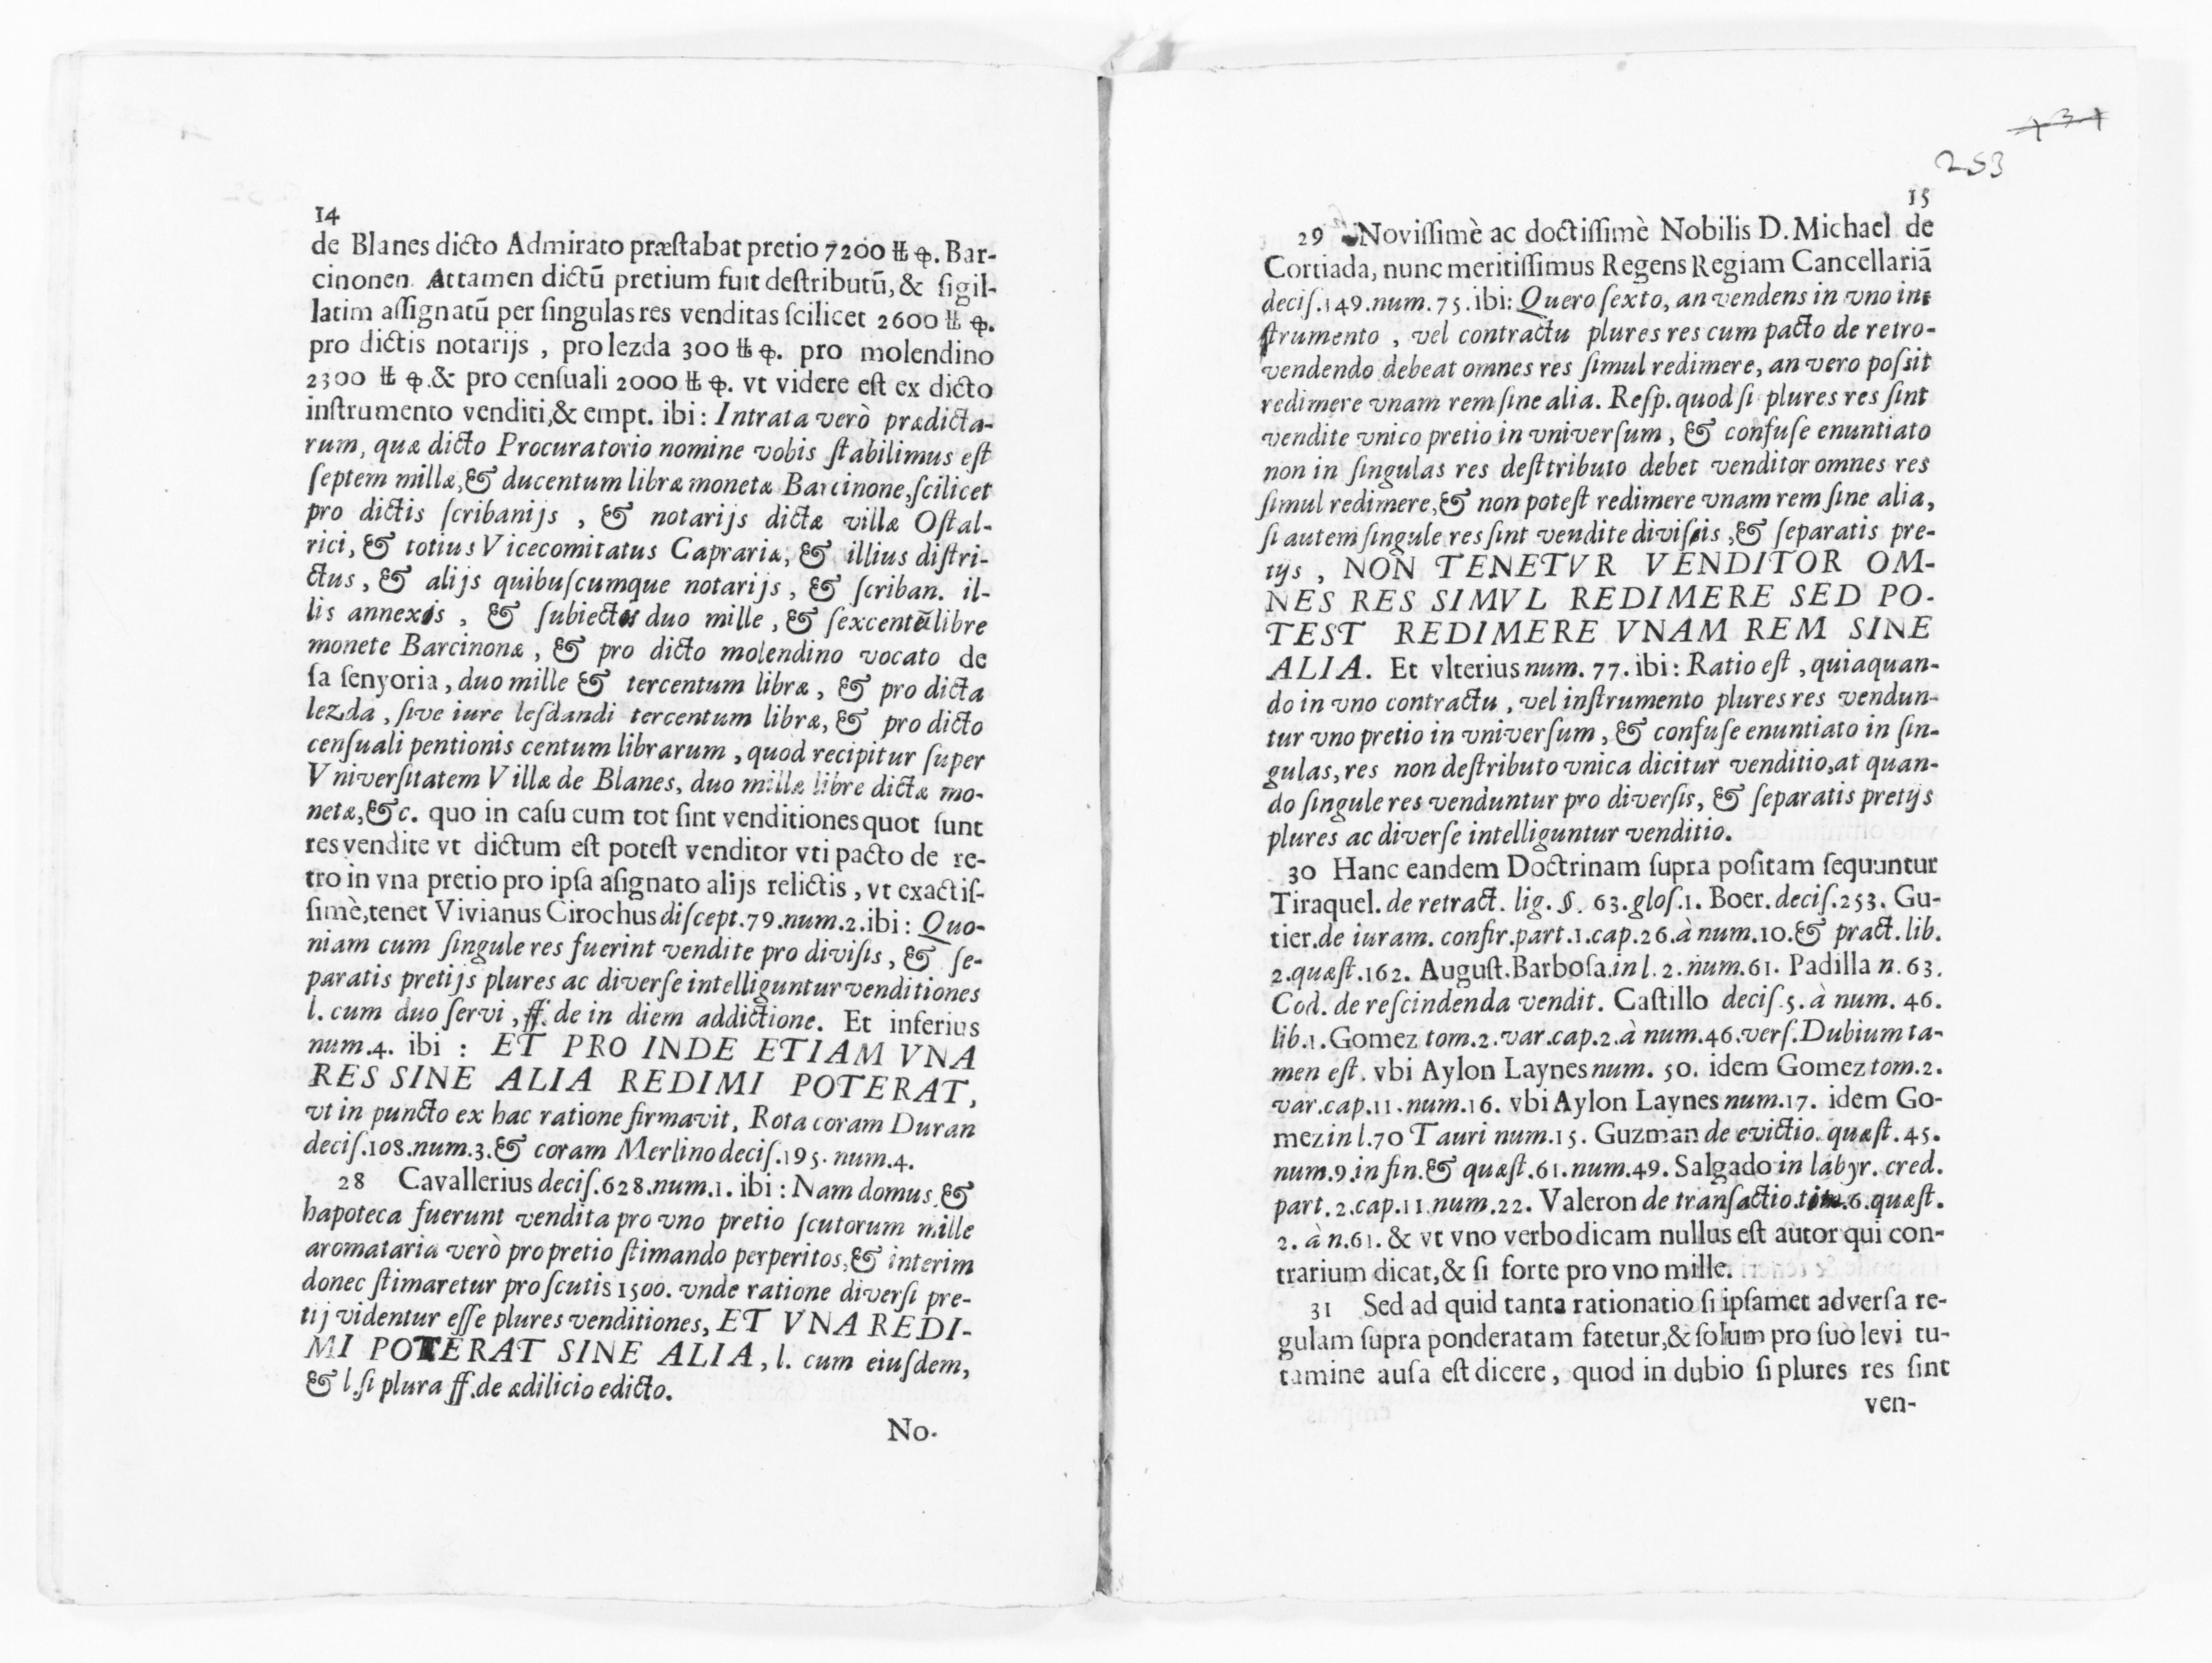 14
de Blanes dicto Admirato præſtabat pretio 7200 ₶ ꝗ. Bar-
cinonen. Attamen dictū pretium fuit deſtributū, & ſigil-
latim aſſignatū per ſingulas res venditas ſcilicet 2600 ₶ ꝗ.
pro dictis notarijs, pro lezda 300 ₶ ꝗ. pro molendino
2300 ₶ ꝗ. & pro cenſuali 2000 ₶ ꝗ. vt videre eſt ex dicto
inſtrumento venditi, & empt. ibi: Intrata verò prædicta-
rum, quæ dicto Procuratorio nomine vobis ſtabilimus eſt
ſeptem millæ, & ducentum libræ monetæ Barcinone, ſcilicet
pro dictis ſcribanijs, & notarijs dictæ villæ Oſtal-
rici, & totius Vicecomitatus Caprariæ, & illius diſtri-
ctus, & alijs quibuſcumque notarijs, & ſcriban. il-
lis annexis, & ſubiectis duo mille, & ſexcentū libre
monete Barcinonæ, & pro dicto molendino vocato de
ſa ſenyoria, duo mille & tercentum libræ, & pro dicta
lezda, ſive iure leſdandi tercentum libræ, & pro dicto
cenſuali pentionis centum librarum, quòd recipitur ſuper
Vniverſitatem Villæ de Blanes, duo millæ libre dictæ mo-
netæ, &c. quo in caſu cum tot ſint venditiones quot ſunt
res vendite vt dictum eſt poteſt venditor vti pacto de re-
tro in vna pretio pro ipſa aſignato alijs relictis, vt exactiſ-
ſimè, tenet Vivianus Cirochus diſcept. 79. num. 2. ibi: Quo-
niam cum ſingule res fuerint vendite pro diviſis, & ſe-
paratis pretijs plures ac diverſe intelliguntur venditiones
l. cum duo ſervi, ff. de in diem addictione. Et inferius
num. 4. ibi: ET PRO INDE ETIAM VNA
RES SINE ALIA REDIMI POTERAT,
vt in puncto ex hac ratione firmavit, Rota coram Duran
deciſ. 108. num. 3. & coram Merlino deciſ. 195. num. 4.
28 Cavallerius deciſ. 628. num. 1. ibi: Nam domus, &
hapoteca fuerunt vendita pro vno pretio ſcutorum mille
aromataria verò pro pretio ſtimando per peritos, & interim
donec ſtimaretur pro ſcutis 1500. vnde ratione diverſi pre-
tij videntur eſſe plures venditiones, ET VNA REDI-
MI POTERAT SINE ALIA, l. cum eiuſdem,
& l. ſi plura ff. de ædilicio edicto.
No-
253
15
29 Noviſſimè ac doctiſſimè Nobilis D. Michael de
Cortiada, nunc meritiſſimus Regens Regiam Cancellariā
deciſ. 149. num. 75. ibi: Quero ſexto, an vendens in vno in-
ſtrumento, vel contractu plures res cum pacto de retro-
vendendo debeat omnes res ſimul redimere, an vero poſsit
redimere vnam rem ſine alia. Reſp. quod ſi plures res ſint
vendite vnico pretio in vniverſum, & confuſe enuntiato
non in ſingulas res deſttributo debet venditor omnes res
ſimul redimere, & non poteſt redimere vnam rem ſine alia,
ſi autem ſingule res ſint vendite diviſis, & ſeparatis pre-
tijs, NON TENETVR VENDITOR OM-
NES RES SIMVL REDIMERE SED PO-
TEST REDIMERE VNAM REM SINE
ALIA. Et vlterius num. 77. ibi: Ratio eſt, quia quan-
do in vno contractu, vel inſtrumento plures res vendun-
tur vno pretio in vniverſum, & confuſe enuntiato in ſin-
gulas, res non deſtributo vnica dicitur venditio, at quan-
do ſingule res venduntur pro diverſis, & ſeparatis pretijs
plures ac diverſe intelliguntur venditio.
30 Hanc eandem Doctrinam ſupra poſitam ſequuntur
Tiraquel. de retract. lig. §. 63. gloſ. 1. Boer. deciſ. 253. Gu-
tier. de iuram. confir. part. 1. cap. 26. à num. 10. & pract. lib.
2. quæſt. 162. Auguſt. Barboſa. in l. 2. num. 61. Padilla n. 63.
Cod. de reſcindenda vendit. Caſtillo deciſ. 5. à num. 46.
lib. 1. Gomez tom. 2. var. cap. 2. à num. 46. verſ. Dubium ta-
men eſt. vbi Aylon Laynes num. 50. idem Gomez tom. 2.
var. cap. 11. num. 16. vbi Aylon Laynes num. 17. idem Go-
mez in l. 70 Tauri num. 15. Guzman de evictio. quæſt. 45.
num. 9. in fin. & quæſt. 61. num. 49. Salgado in labyr. cred.
part. 2. cap. 11. num. 22. Valeron de tranſactio. tit. 6. quæſt.
2. à n. 61. & vt vno verbo dicam nullus eſt autor qui con-
trarium dicat, & ſi forte pro vno mille.
31 Sed ad quid tanta rationatio ſi ipſamet adverſa re-
gulam ſupra ponderatam fatetur, & ſolum pro ſuo levi tu-
tamine auſa eſt dicere, quod in dubio ſi plures res ſint
ven-